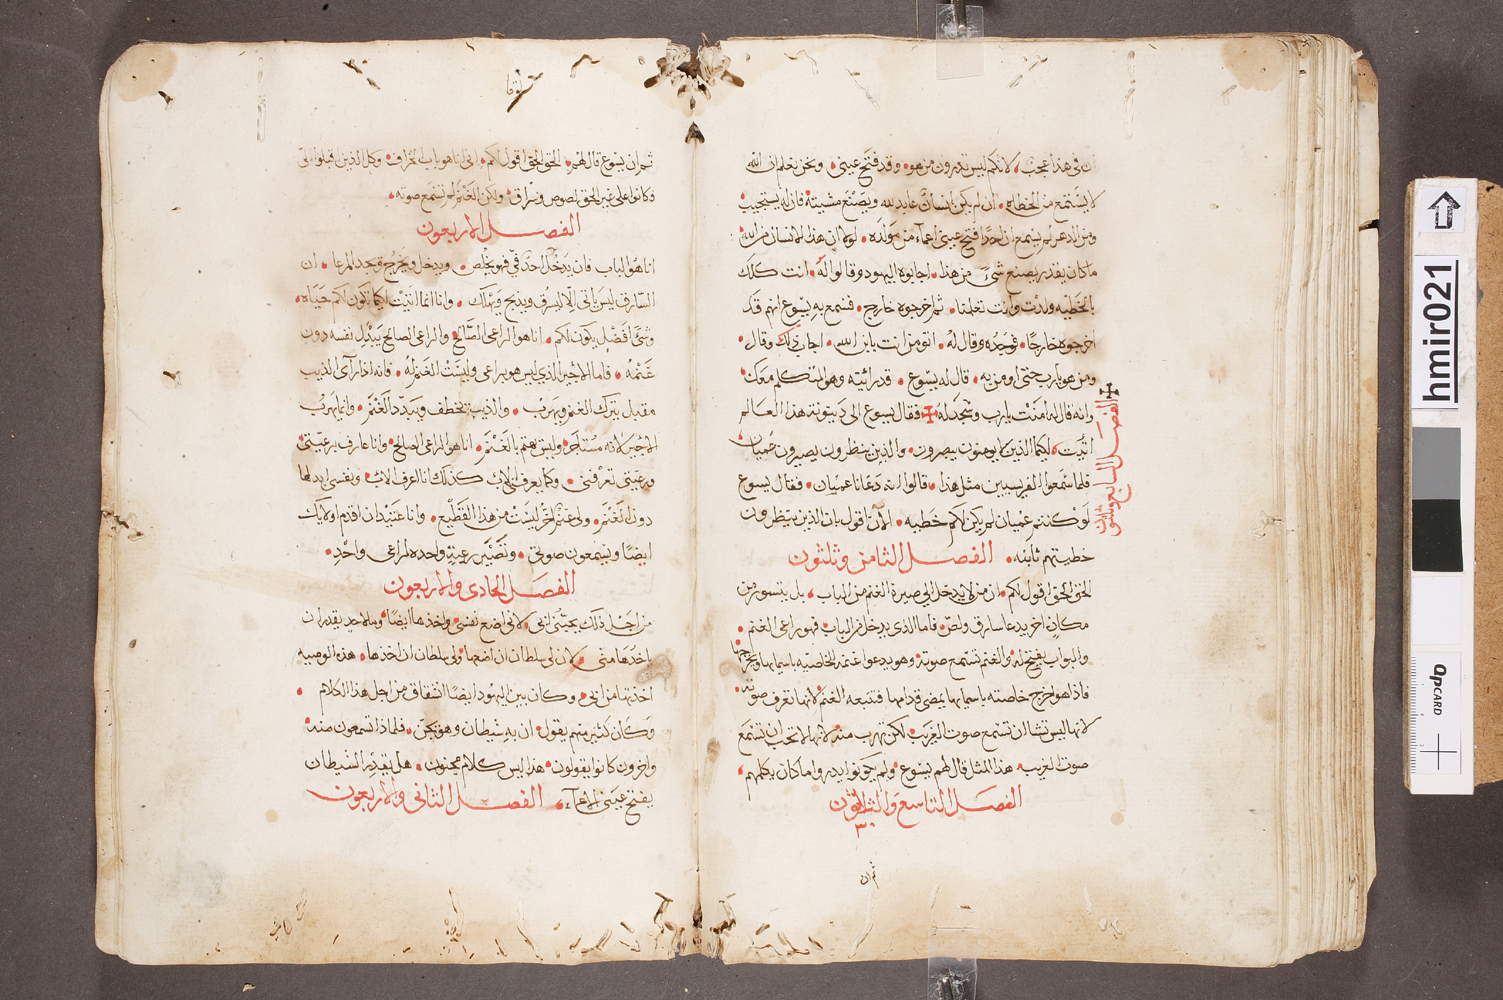 ان في هذا عجبًا لانكم ليس تدرون من هو وقد فتح عيني ونحن نعلم ان الله
لا يستمع من الخطاه ان لم يكن انسان عابد لله ويصنع مشيته فان له يستجيب
ومن الدهر لم يسمع ان احدًا فتح عيني اعماء من مولده لولا ان هذا الانسان من الله
ما كان يقدر يصنع شيء من هذا اجابوه اليهود وقالوا له انت كلك
بالخطيه ولدت وانت تعلمنا ثم اخرجوه خارج فسمع به يسوع انهم قد
اخرجوه خارجًا فوجده وقال له اتومن انت بابن الله اجاب ذلك وقال
ومن هو يا رب حتى اومن به قال له يسوع قد رايته وهو المتكلم معك
وانه قال له امنت يا رب وسجد له فقال يسوع الى دينونة هذا العالم
اتيت ليكما الذين لا يبصرون يبصرون والذين ينظرون يصيرون عميان
فلما سمعوا الفريسيين مثل هذا قالوا له دعانا عميان فقال يسوع
لو كنتم عميان لم يكن لكم خطيه الآن اقول بان الذين ينظرون
خطيتهم ثابته الفصل الثامن وثلثون
الحق الحق اقول لكم ان من لا يدخل الى صيرة الغنم من الباب بل يتسور من
مكان اخر يدعا سارق ولص فاما الذي يدخل من الباب فهو راعي الغنم
والبواب يفتح له والغنم تستمع صوته وهو يدعوا غنمه الخاصيه باسمايها ويخرجها
فاذا هو اخرج خاصته باسمايها يمضى قدامها فتتبعه الغنم لانها تعرف صوته
لانها ليس تشا ان تسمع صوت الغريب لكن تهرب منه لانها لا تحب ان تسمع
صوت الغريب هذا المثل قال لهم يسوع ولم يكونوا يدروا ما كان يكلمهم
الفصل التاسع والثلثون
ثم ان
الفصل السابع وثلثون
لوقا
ثم ان يسوع قال لهم الحق الحق اقول لكم انى انا هو باب الخراف وكل الذين اقبلوا الى
وكانوا على غير الحق لصوص وسراق ولكن الغنم لم تسمع صوته
الفصل الاربعون
انا هو الباب فان يدخل احد فيّ فهو يخلص ويدخل ويخرج ويجد المرعا ان
السارق ليس ياتى الا ليسرق ويذبح ويهلك وانا انما اتيت ليكما تكون لكم حياه
وشئ افضل يكون لكم انا هو الراعى الصالح والراعى الصالح يبذل نفسه دون
غنمه فاما الاجير الذى ليس هو براعى وليست الغنم له فانه اذا رآى الذيب
مقبل يترك الغنم ويهرب والذيب يخطف ويبدد الغنم وانما يهرب
الاجير لانه مستاجر وليس يهتم بالغنم انا هو الراعى الصالح وانا عارف برعيتى
ورعيتى تعرفنى وكما يعرفنى الاب كذلك انا اعرف الاب ونفسى ابدلها
دون الغنم ولى غنم اخر ليست من هذا القطيع وانا عتيد ان اقدم اولايك
ايضًا ويسمعون صوتي وتصير رعية واحده لراعى واحد
الفصل الحادى والاربعون
من اجل ذلك يحبنى ابى لانى اضع نفسى واخذها ايضًا وما لاحد يقدر ان
ياخذها منى لان لى سلطان ان اضعها ولى سلطان ان اخذها هذه الوصيه
اخذتها من ابى وكان بين اليهود ايضًا انشقاق من اجل هذا الكلام
وكان كثير منهم يقول ان به شيطان وهو يجن فلماذا تسمعون منه
واخرون كانوا يقولون هذا ليس كلام مجنون هل يقدر الشيطان
يفتح عينى الاعماء الفصل الثانى والاربعون
hmir021
dpCARD